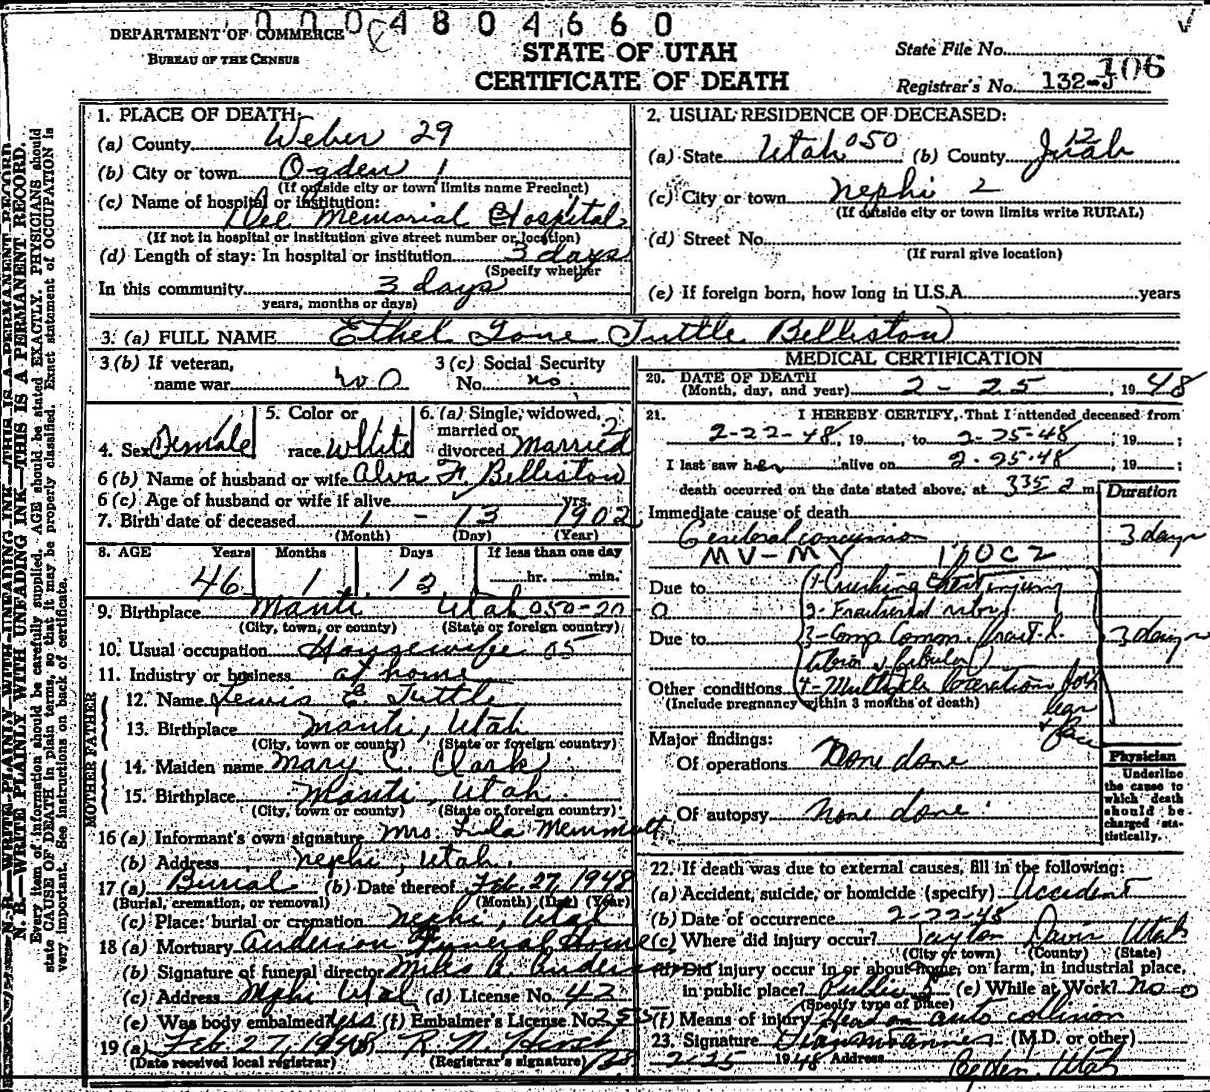 0004804660
DEPARTMENT OF COMMERCE
BUREAU OF THE CENSUS
STATE OF UTAH
CERTIFICATE OF DEATH
State File No. 106
Registrar's No. 132-J
N. B.—WRITE PLAINLY WITH UNFADING INK—THIS IS A PERMANENT RECORD.
Every item of information should be carefully supplied. AGE should be stated EXACTLY. PHYSICIANS should
state CAUSE OF DEATH in plain terms, so that it may be properly classified. Exact statement of OCCUPATION is
very important. See instructions on back of certificate.
1. PLACE OF DEATH:
(a) County Weber 29
(b) City or town Ogden 1
(If outside city or town limits name Precinct)
(c) Name of hospital or institution:
Dee Memorial Hospital
(If not in hospital or institution give street number or location)
(d) Length of stay: In hospital or institution 3 days
(Specify whether
In this community 3 days
years, months or days)
2. USUAL RESIDENCE OF DECEASED:
(a) State Utah 050 (b) County Juab 12
(c) City or town Nephi 2
(If outside city or town limits write RURAL)
(d) Street No.
(If rural give location)
(e) If foreign born, how long in U.S.A. years
3. (a) FULL NAME Ethel Tuttle Belliston
3 (b) If veteran,
name war no
3 (c) Social Security
No. no
4. Sex Female
5. Color or
race White
6. (a) Single, widowed,
married or
divorced Married 2
6 (b) Name of husband or wife Alva F. Belliston
6 (c) Age of husband or wife if alive yrs.
7. Birth date of deceased 1 - 13 1902
(Month) (Day) (Year)
8. AGE Years Months Days If less than one day
46 1 12 hr. min.
9. Birthplace Manti Utah 050-20-0
(City, town, or county) (State or foreign country)
10. Usual occupation Housewife 05
11. Industry or business at home
MOTHER FATHER
12. Name Lewis E. Tuttle
13. Birthplace Manti, Utah
(City, town or county) (State or foreign country)
14. Maiden name Mary C. Clark
15. Birthplace Manti, Utah
(City, town or county) (State or foreign country)
16 (a) Informant's own signature Mrs. Lula Memmott
(b) Address Nephi, Utah.
17 (a) Burial (b) Date thereof Feb. 27, 1948
(Burial, cremation, or removal) (Month) (Day) (Year)
(c) Place: burial or cremation Nephi, Utah
18 (a) Mortuary Anderson Funeral Home
(b) Signature of funeral director Miles A. Anderson
(c) Address Nephi Utah (d) License No. 42
(e) Was body embalmed? yes (f) Embalmer's License No. 253
19 (a) Feb 27, 1948
(Date received local registrar) (Registrar's signature)
MEDICAL CERTIFICATION
20. DATE OF DEATH
(Month, day, and year) 2-25, 1948
21. I HEREBY CERTIFY, That I attended deceased from
2-22-48, 19 , to 2-25-48, 19 ;
I last saw her alive on 2-25-48, 19 ;
death occurred on the date stated above, at 335 a m.
Duration
Immediate cause of death
Cerebral concussion 3 days
MV-MV 170C2
Due to 1-Crushing chest injury
2-Fractured ribs
Due to 3-Comp Comm. fract R. 3 days
tibia & fibula
Other conditions 4-Multiple lacerations
(Include pregnancy within 3 months of death)
ear
+ face
Major findings:
Of operations None done
Of autopsy None done.
Physician
Underline
the cause to
which death
should be
charged sta-
tistically.
22. If death was due to external causes, fill in the following:
(a) Accident, suicide, or homicide (specify) Accident
(b) Date of occurrence 2-22-48
(c) Where did injury occur? Layton Davis Utah
(City or town) (County) (State)
(d) Did injury occur in or about home, on farm, in industrial place,
in public place? Public 5 (e) While at Work? no 0
(Specify type of place)
(f) Means of injury Head on auto collision
23. Signature (M.D. or other)
2-25 1948 Address Ogden, Utah